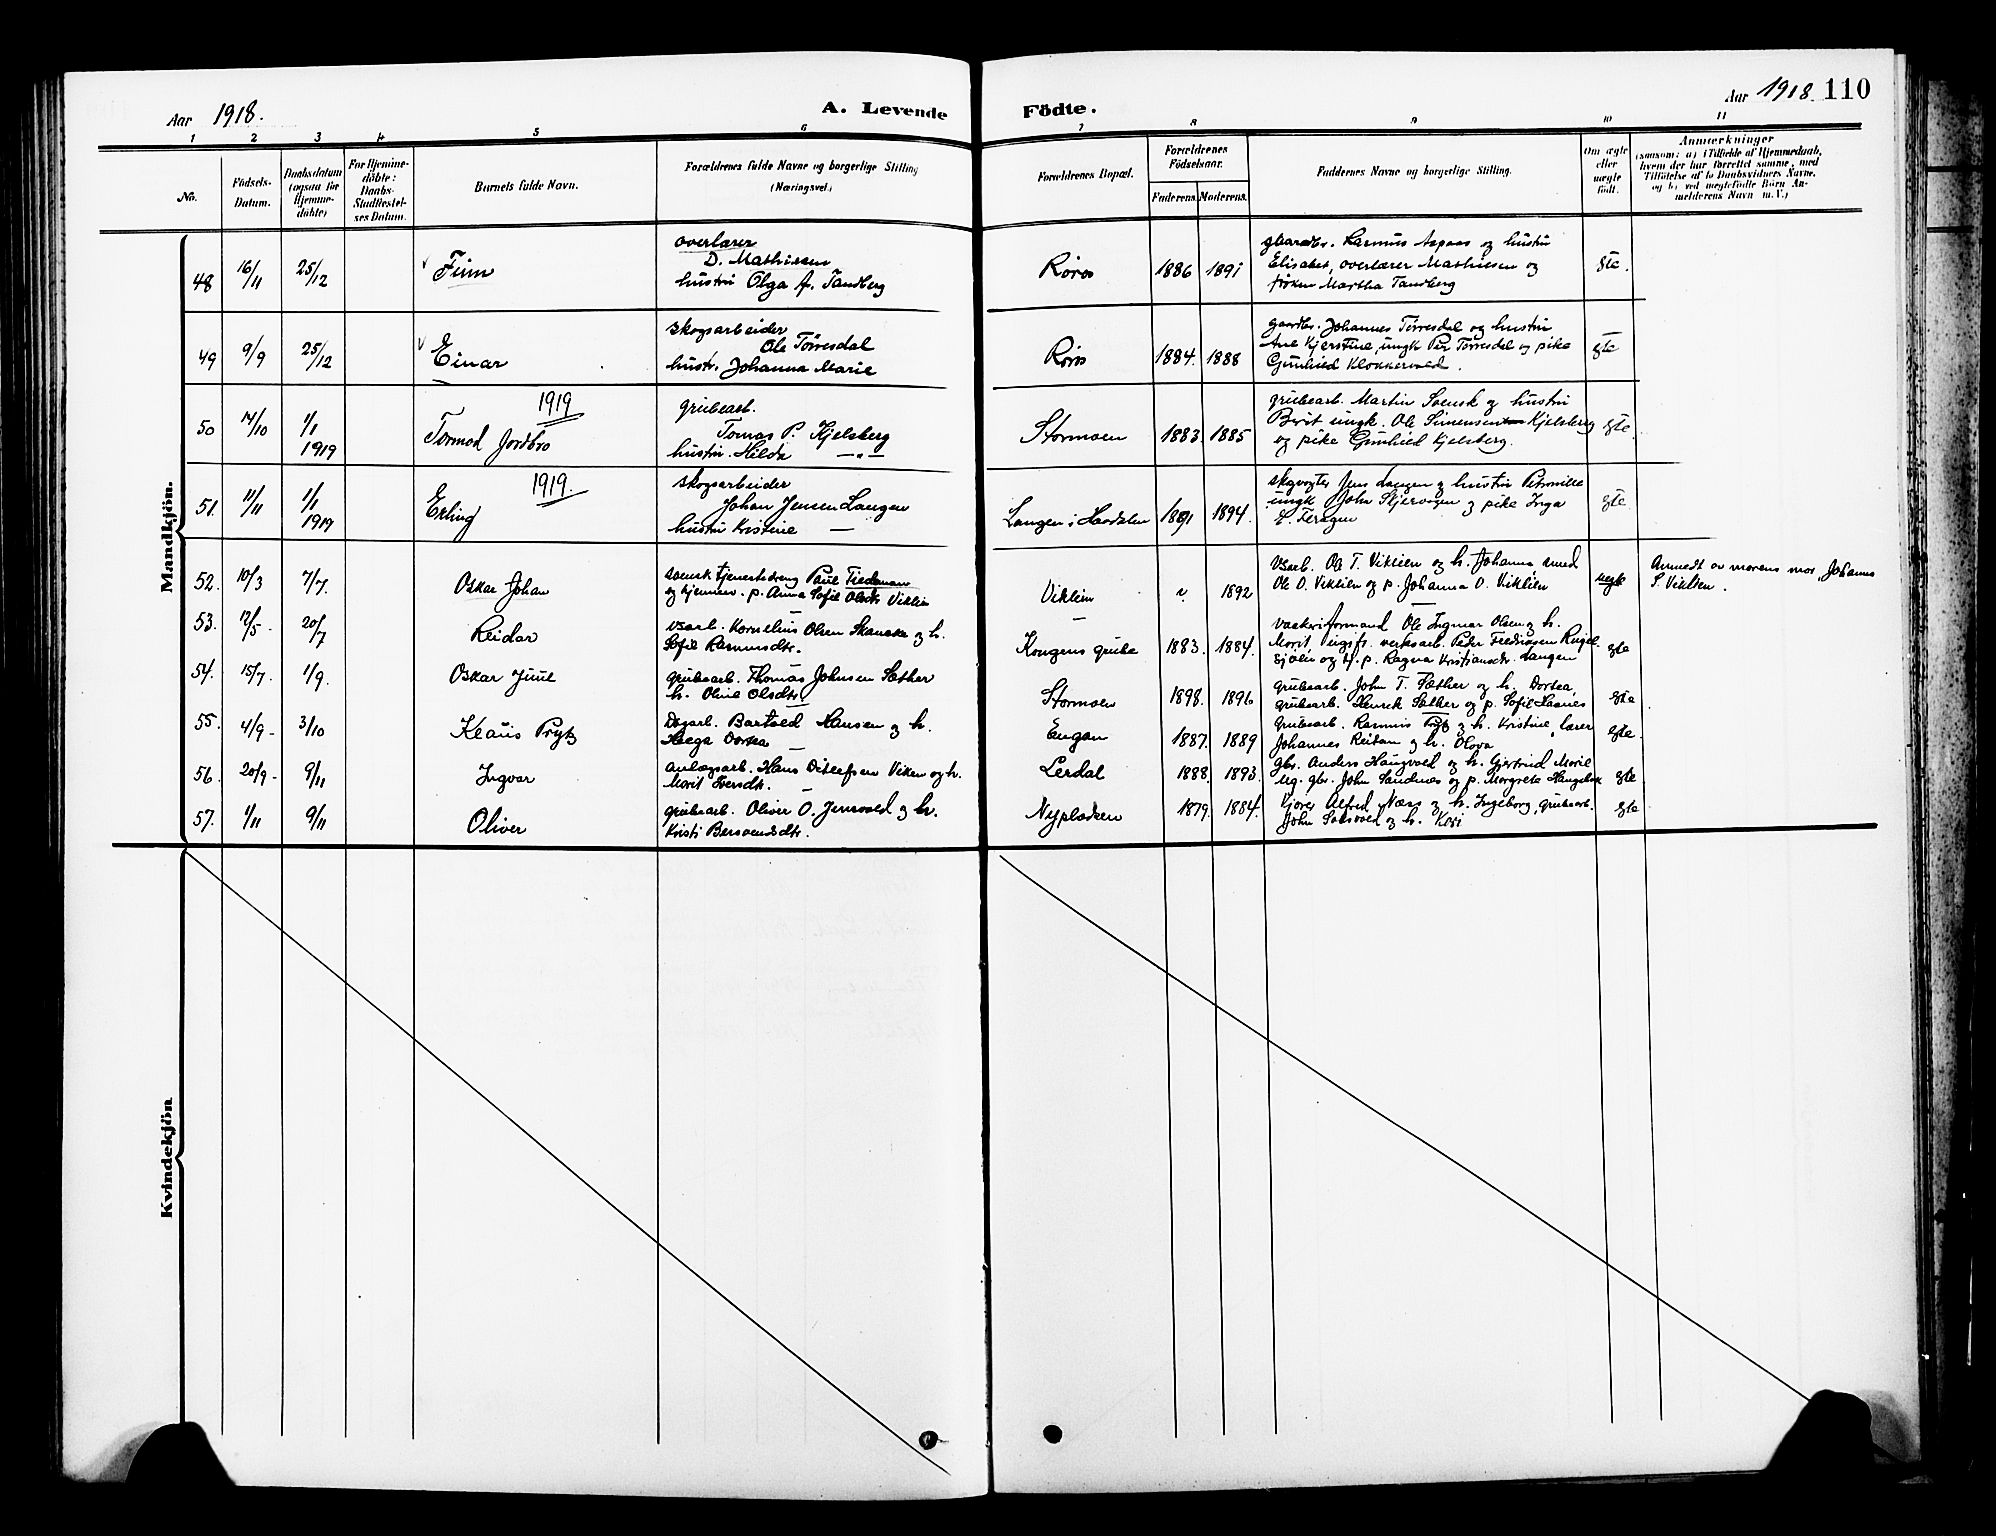 Aar 1918.
A. Levende Födte.
Aar 1918. 110
1 2 3 4 5 6 7 8 9 10 11
No.
Födsels-
Datum.
Daabsdatum
(ogsaa for
Hjemme-
döbte)
For Hjemme-
döbte:
Daabs-
Stadfæstel-
ses Datum.
Barnets fulde Navn.
Forældrenes fulde Navne og borgerlige Stilling
(Næringsvei.)
Forældrenes Bopæl.
Forældrenes
Födselsaar.
Faderens. Moderens.
Faddernes Navne og borgerlige Stilling.
Om ægte
eller
uægte
født.
Anmærkninger
(saasom: a) i Tilfælde af Hjemmedaab,
hvem der har forrettet samme, med
Tilföielse af to Daabsvidners Navne,
og b) ved uægtefödte Börn An-
melderens Navn m. V.)
Mandkjön.
48 16/11 25/12 Finn
overlærer
D. Mathisen
hustru Olga f. Tandberg
Røros 1886 1891
gaardbr. Rasmus Aspaas og hustru
Elisabet, overlærer Mathisen og
frøken Martha Tandberg
gte.
49 9/9 25/12 Einar
skogsarbeider
Ole Tørresdal
hustr. Johanna Marie
Røros 1884. 1888
gaardbr. Johannes Tørresdal og hustru
Ane Kjerstine, ungk Per Tørresdal og pike
Gunhild Klokkervold.
gte
50 14/10 1/1 1919
1919
Tormod Jordbro
grubearb.
Tomas P. Kjelsberg
hustru Hilda —"—
Stormoen 1883 1885
grubearb. Martin Svensk og hustru
Brit ungk. Ole Simensen Kjelsberg
og pike Gunhild Kjelsberg.
gte.
51. 11/11 1/1 1919
1919.
Erling
skogsarbeider
Johan Jensen Langen
hustru Kristine —
Langen i Haadalen 1891 1894.
skogvogter Jens Langen og hustru Petronille
ungk John Skjervagen og pike Inga
E. Feragen
gte
52. 10/3 7/7. Oskar Johan
svensk tjenestedreng Paul Tiedeman
og tjenner. p. Anna Sofie Olsdtr Viklien
Viklein 1892
Vsarb. Ole T. Viklien og h. Johanna, smed
Ole O. Viklien og p. Johanna O. Viklien
uegte
Anmedt av morens mor, Johanna
S. Viklien.
53. 12/5. 20/7 Reidar
vsarb. Kornelius Olsen Skancke og h.
Sofie Rasmusdtr.
Kongens grube 1883. 1884.
vaskeriformand Ole Ingmar Olsen og h.
Morit, ugift. verksarb. Peder Fredriksen Rugel-
sjøen og p. Ragna Kristiansdtr. Langen
gte
54. 15/7. 1/9. Oskar Juul
grubearb. Thomas Johnsen Sæther
h. Oline Olsdtr
Stormoen 1898. 1896
grubearb. John T. Sæther og h. Dortea,
grubearb. Henrik Sæther og p. Sofie Haanes
gte
55. 4/9. 3/10 Klaus Prytz
Dagarb. Bartold Hansen og h.
Helga Dortea —
Engan 1887. 1889
grubearb. Rasmus Prytz og h. Kristine, lærer
Johannes Reitan og h. Olova
gte.
56. 20/9. 9/11 Ingvar
anlægsarb. Hans Ditlefsen Viken og h.
Morit Iversdtr.
Lerdal 1888. 1893.
gbr. Anders Haugvold og h. Gjertrud Marie
ug. gbr. John Sandnes og p. Margrete
gte.
57. 1/11 9/11 Oliver
grubearb. Oliver O. Jensvold og h.
Kristi Bersvendsdtr.
Nyplassen 1879. 1884.
kjører Alfred Næss og h. Ingeborg, grubearb.
John Solsvold og h. Kari
gte
Kvindekjön